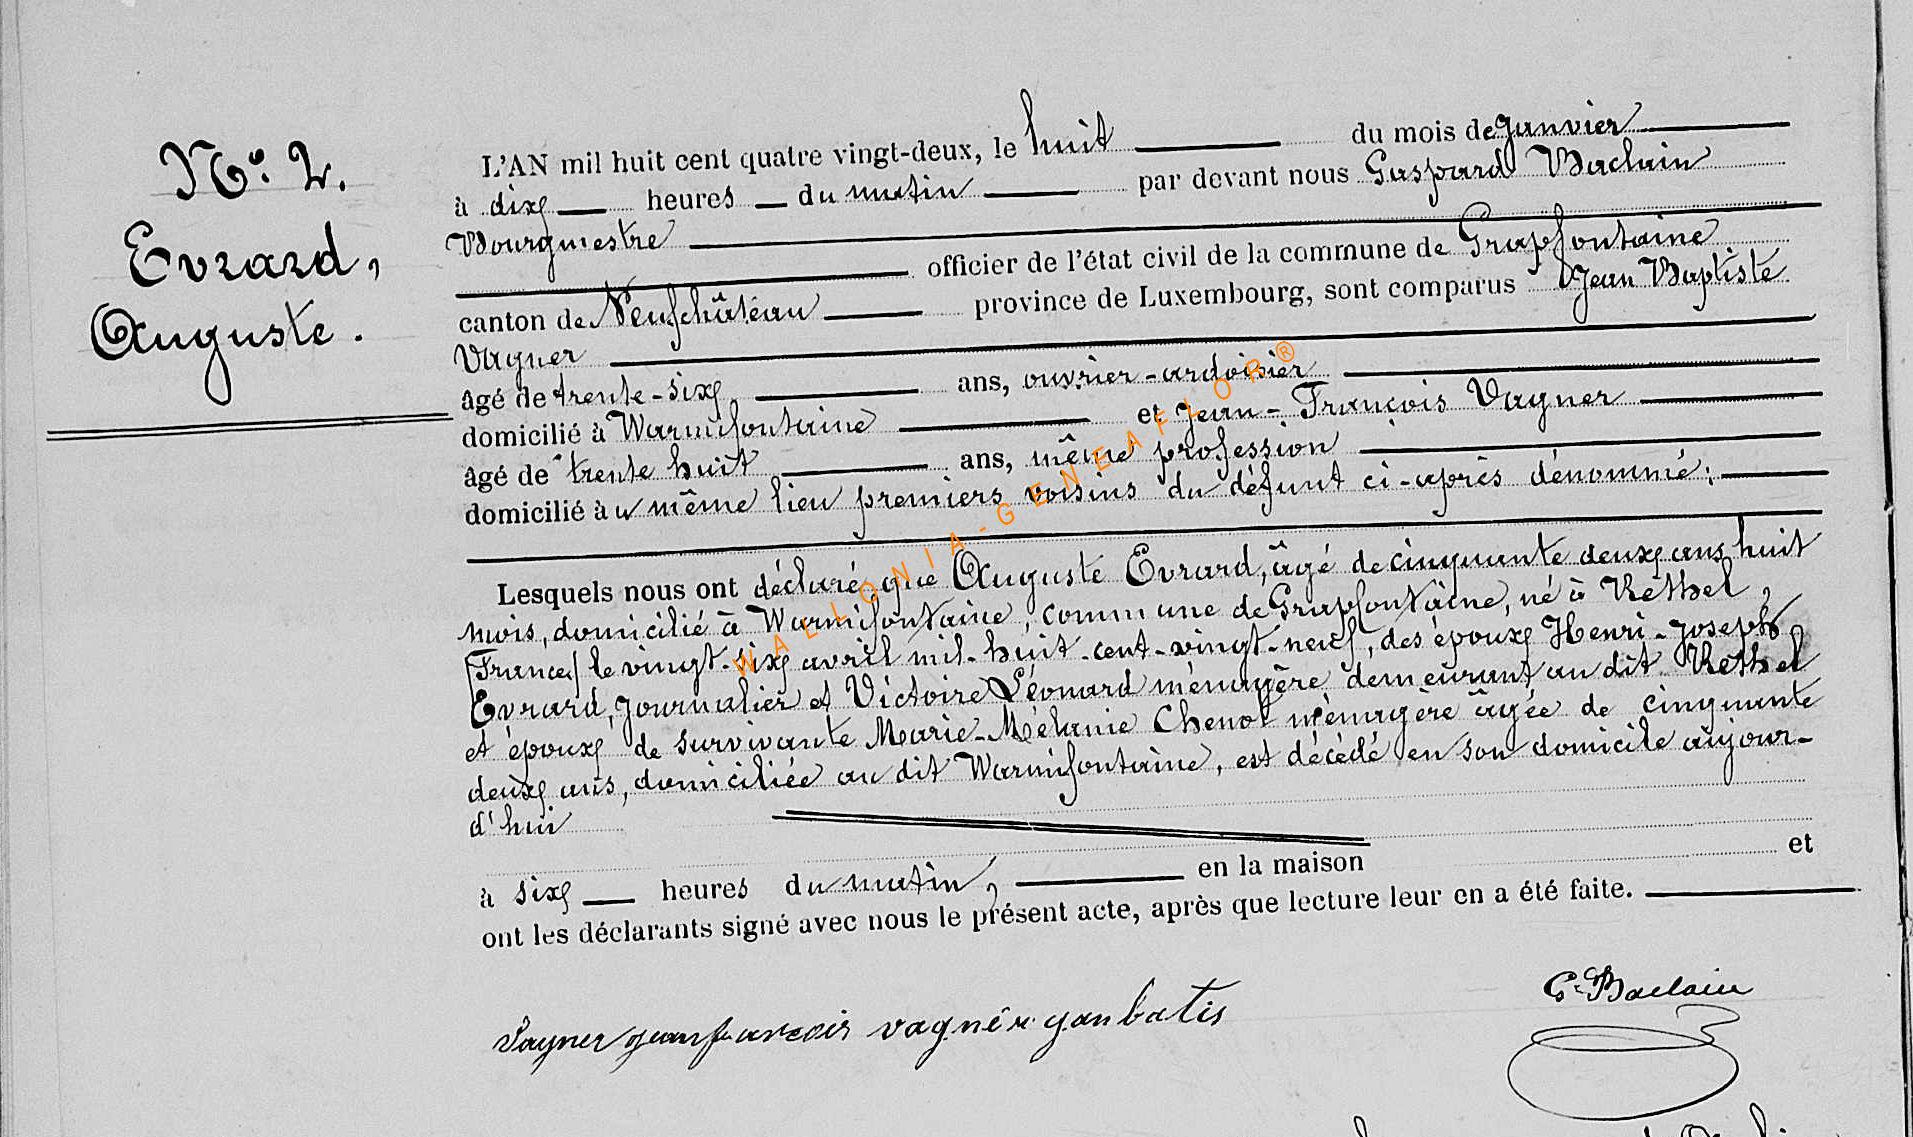 N.° 2.
Evrard,
Auguste.
L'AN mil huit cent quatre vingt-deux, le huit du mois de Janvier
à dix heures du matin par devant nous Gaspard Baclain
Bourgmestre
officier de l'état civil de la commune de Grapfontaine
canton de Neufchâteau province de Luxembourg, sont comparus Jean Baptiste
Vagner
âgé de trente-six ans, ouvrier-ardoisier
domicilié à Warmifontaine et Jean-François Vagner
âgé de trente huit ans, même profession
domicilié au même lieu premiers voisins du défunt ci-après dénommé;
Lesquels nous ont déclaré que Auguste Evrard, âgé de cinquante deux ans huit
mois, domicilié à Warmifontaine, commune de Grapfontaine, né à Rethel,
(France) le vingt-six avril mil-huit-cent-vingt-neuf, des époux Henri-Joseph
Evrard, journalier et Victoire Léonard ménagère demeurant au dit Rethel
et époux de survivante Marie-Mélanie Chenot ménagère âgée de cinquante
deux ans, domiciliée au dit Warmifontaine, est décédé en son domicile aujour-
d'hui
à six heures du matin, en la maison et
ont les déclarants signé avec nous le présent acte, après que lecture leur en a été faite.
G. Baclain
Vagner jean francois vagnér gan batis
WALLONIA-GENEAFLOR®